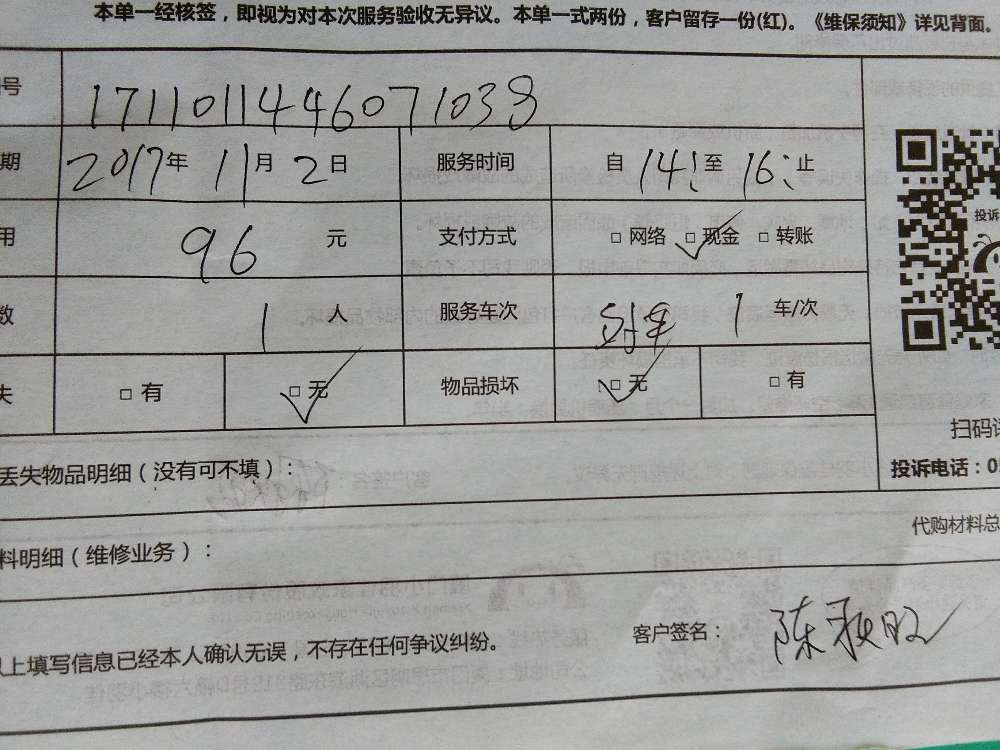 本单一经核签，即视为对本次服务验收无异议。本单一式两份，客户留存一份(红)。《维保须知》详见背面。
号 1711011446071038
期 2017年 11月 2日 服务时间 自 14: 至 16: 止
用 96 元 支付方式 □ 网络 □ 现金 □ 转账
投诉
数 1 人 服务车次 1 车/次
失 □ 有 □ 无 物品损坏 □ 无 □ 有
扫码
丢失物品明细（没有可不填）：
投诉电话：0
代购材料总
料明细（维修业务）：
以上填写信息已经本人确认无误，不存在任何争议纠纷。
客户签名： 陈